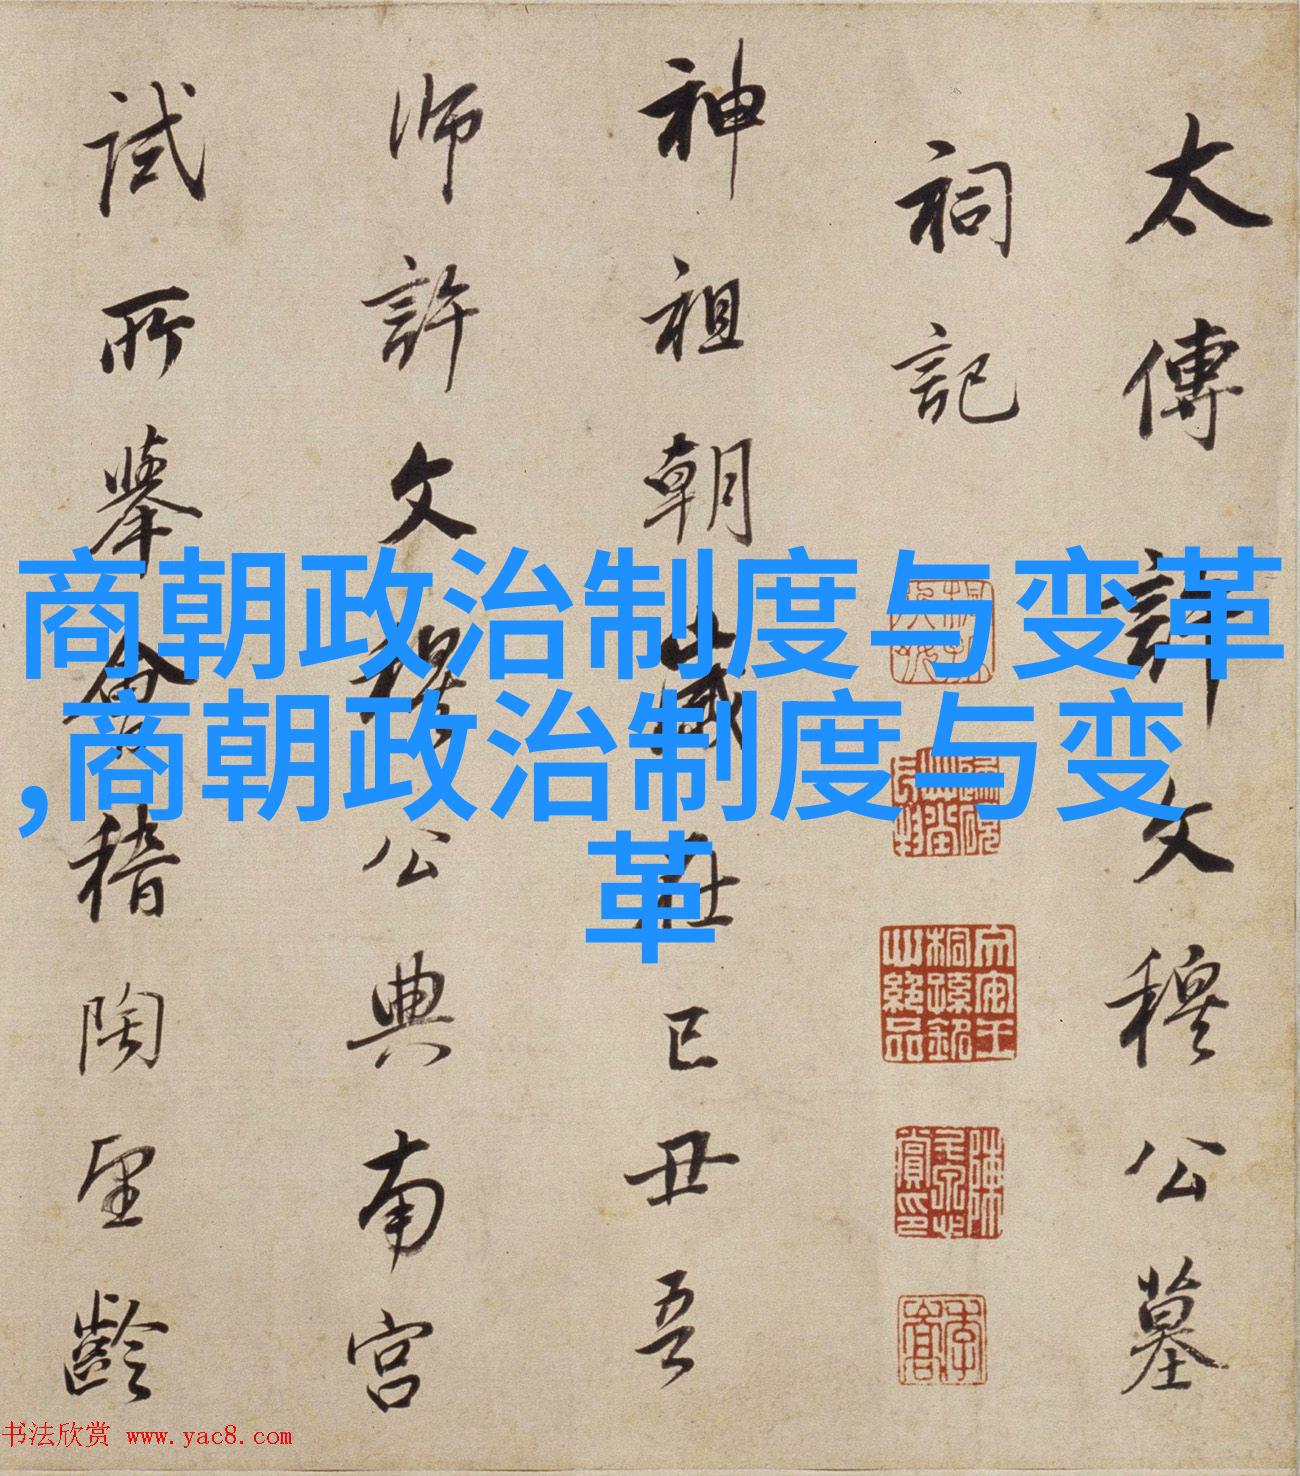 商朝政治制度与变革
,商朝政治制度与变
革
太傅許文穆公墓
祠記
神祖朝歲在己丑吾
師許文穆公典南宮
試所舉會稽陶望齡
书法欣赏 www.yac8.com